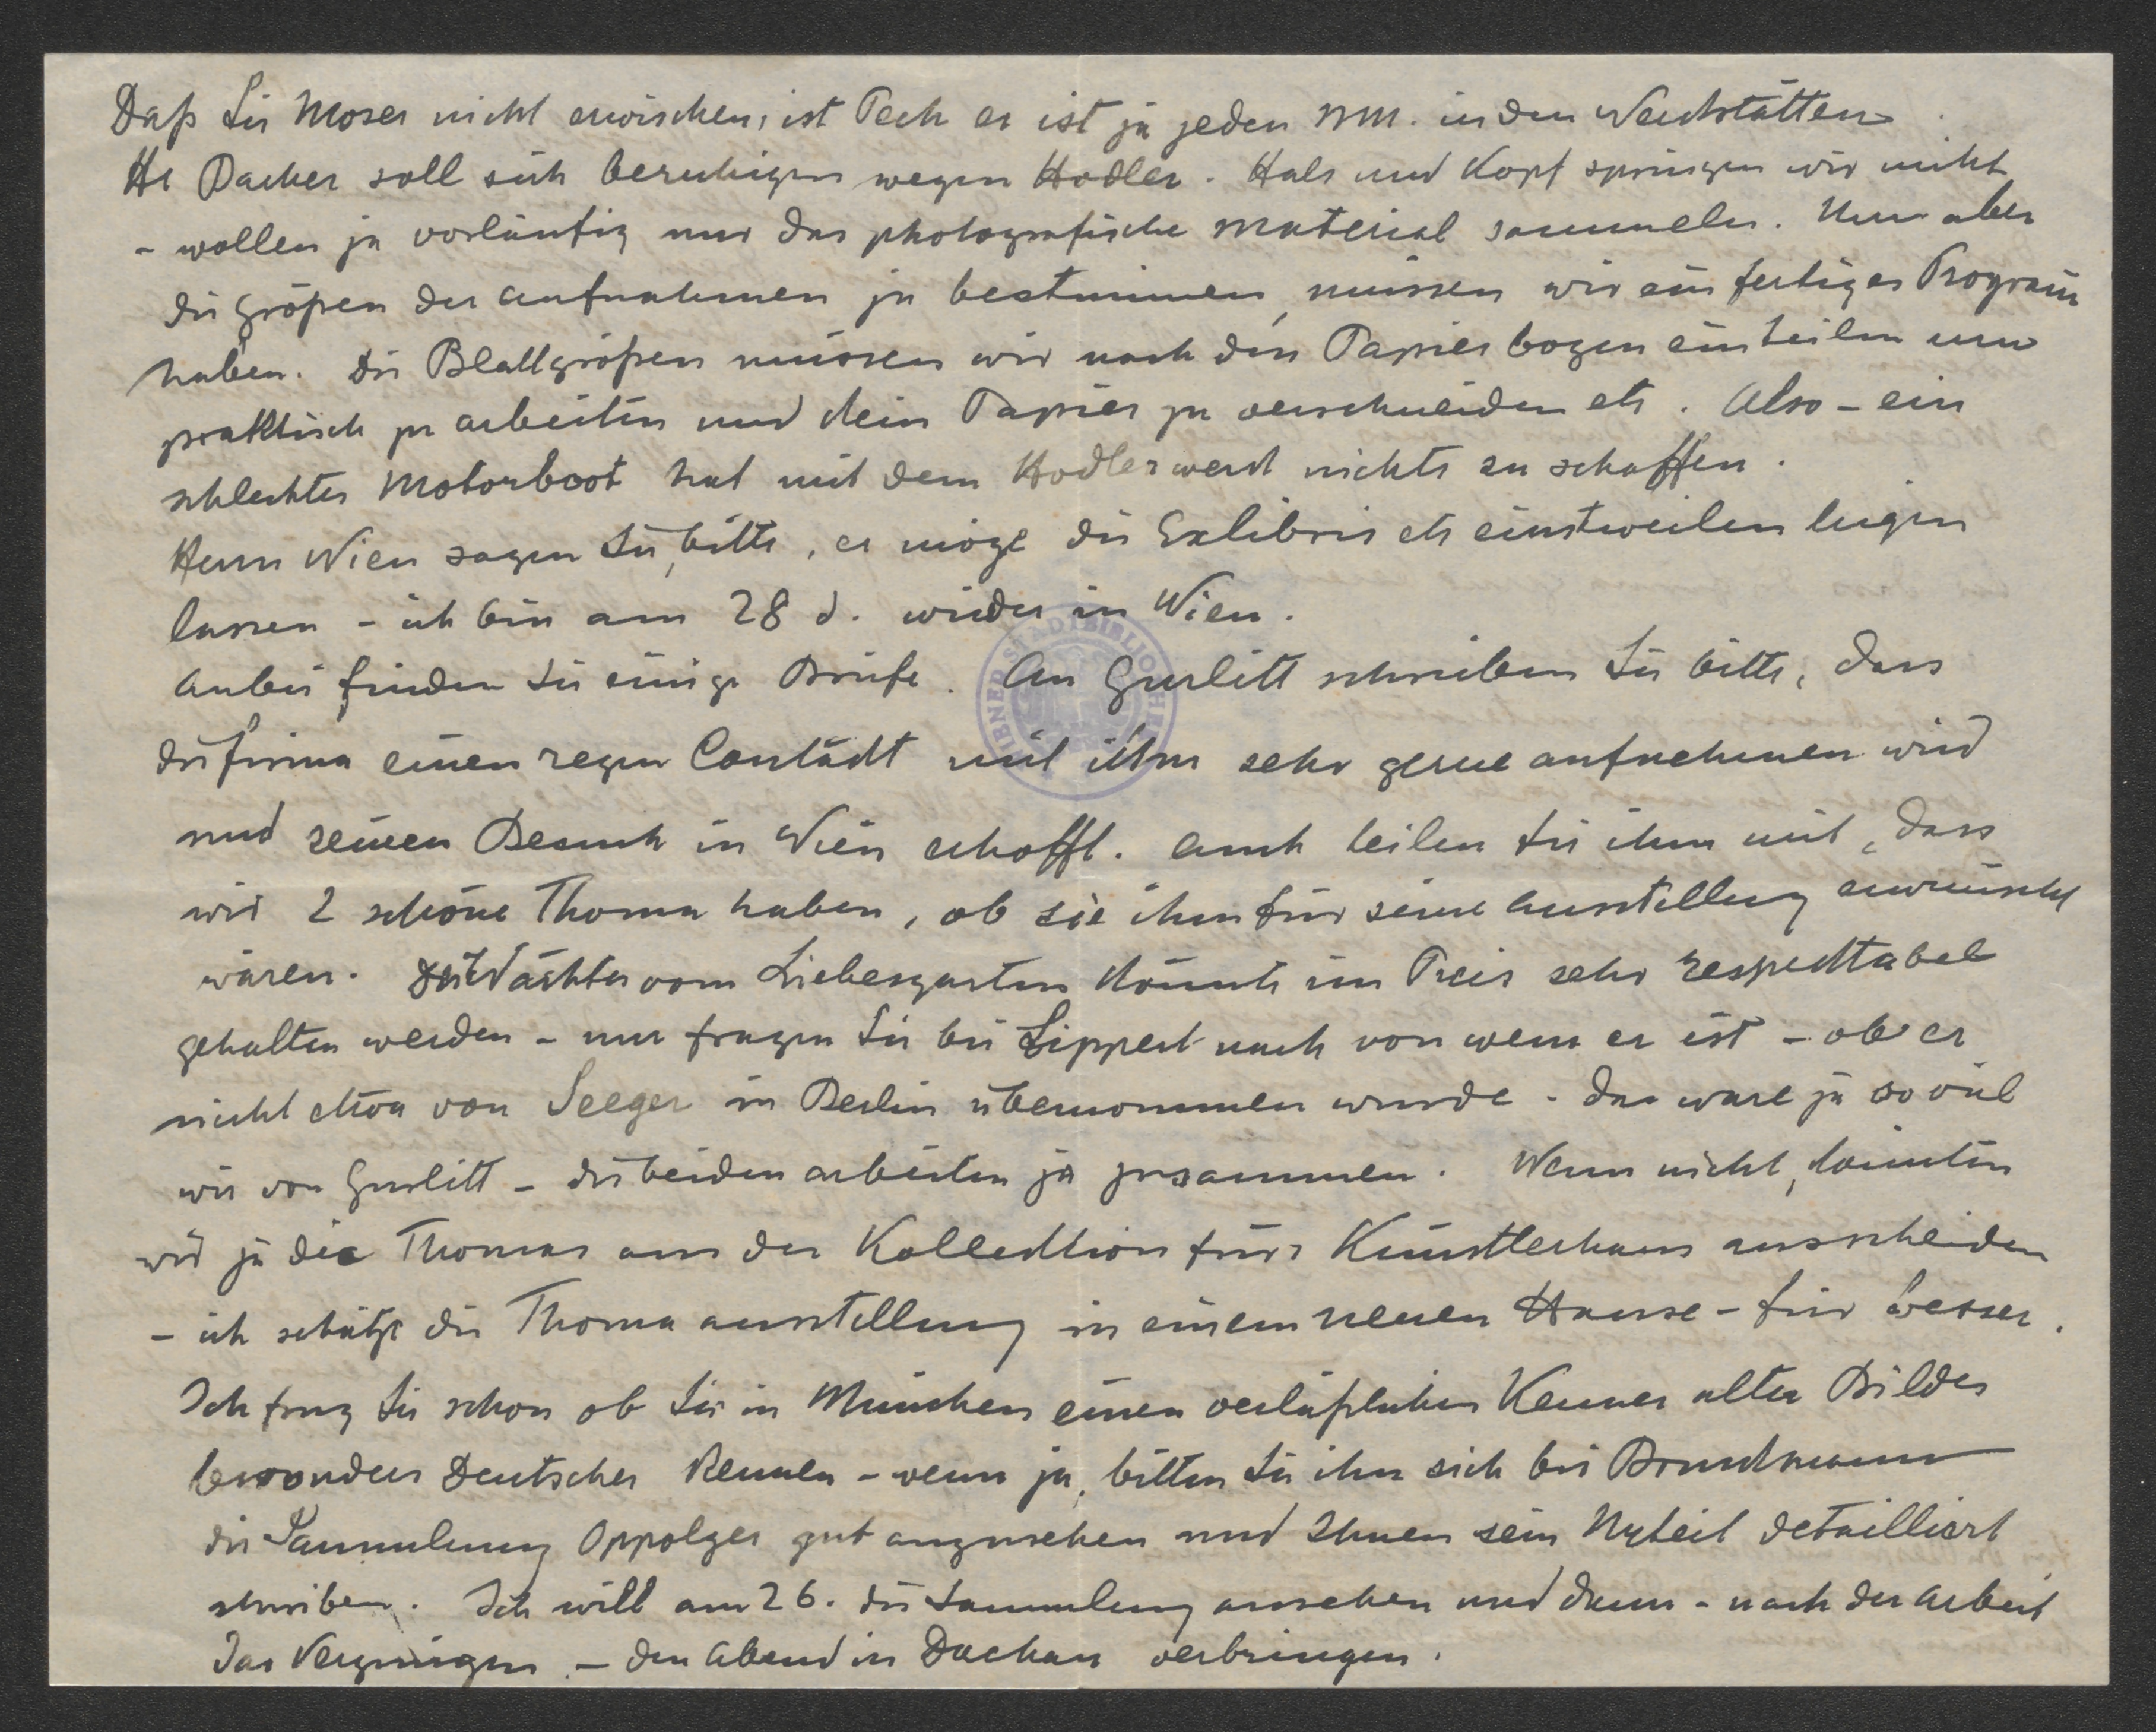 Daß Sie Moser nicht erwischen, ist Pech er ist ja jeden NM. in den Werkstätten.
Hr Dacher soll sich beruhigen wegen Hodler. Hals und Kopf springen wir nicht
- wollen ja vorläufig nur das photografische Material sammeln. Um aber
die Größen der Aufnahmen zu bestimmen, müssen wir ein fertiges Program̄
haben. Die Blattgrößen müssen wir nach den Papierbogen einteilen um
praktisch zu arbeiten und kein Papier zu verschneiden etc. Also - ein
schlechtes Motorboot hat mit dem Hodlerwerk nichts zu schaffen.
Herrn Wien sagen Sie, bitte, er möge die Exlibris etc einstweilen liegen
lassen - ich bin am 28 d. wieder in Wien.
Anbei finden Sie einige Briefe. An Gurlitt schreiben Sie bitte, dass
die Firma einen regen Contakt mit ihm sehr gerne aufnehmen wird
und seinen Besuch in Wien erhofft. Auch teilen Sie ihm mit, dass
wir 2 schöne Thoma haben, ob sie ihm für seine Ausstellung erwünscht
wären. Der Wächter vom Liebesgarten könnte im Preis sehr respektabel
gehalten werden - nur fragen Sie bei Lippert nach von wem er ist - ob er
nicht etwa von Seeger in Berlin übernommen wurde - das wäre ja so viel
wie von Gurlitt - die beiden arbeiten ja zusammen. Wenn nicht, könnten
wir ja die Thomas aus der Kollektion fürs Künstlerhaus ausscheiden
- ich schätze die Thoma ausstellung in einem neuen Hause - für besser.
Ich frug Sie schon ob Sie in München einen verläßlichen Kenner alter Bilder
besonders Deutscher kennen - wenn ja, bitten Sie ihn sich bei Bruckmann
die Sammlung Oppolzer gut anzusehen und Ihnen sein Urteil detailliert
schreiben. Ich will am 26. die Sammlung ansehen und dann - nach der Arbeit
das Vergnügen - den Abend in Dachau verbringen.